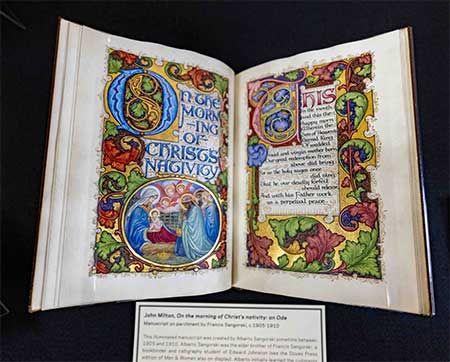 ON THE
MORN
-ING
OF
CHRISTS
NATIVITY
THIS
is the month
and this the
happy morn
Wherein the
Son of Heaven's
eternal King
Of wedded
maid and virgin mother born
Our great redemption from
above did bring
For so the holy sages once
did sing
That he our deadly forfeit
should release
And with his Father work
us a perpetual peace.
John Milton, On the morning of Christ's nativity: an Ode
Manuscript on parchment by Francis Sangorski, c.1905-1910
This illuminated manuscript was created by Alberto Sangorski sometime between
1905 and 1910. Alberto Sangorski was the elder brother of Francis Sangorski, a
bookbinder and calligraphy student of Edward Johnston (see the Doves Press
edition of Men & Women also on display). Alberto initially learned the